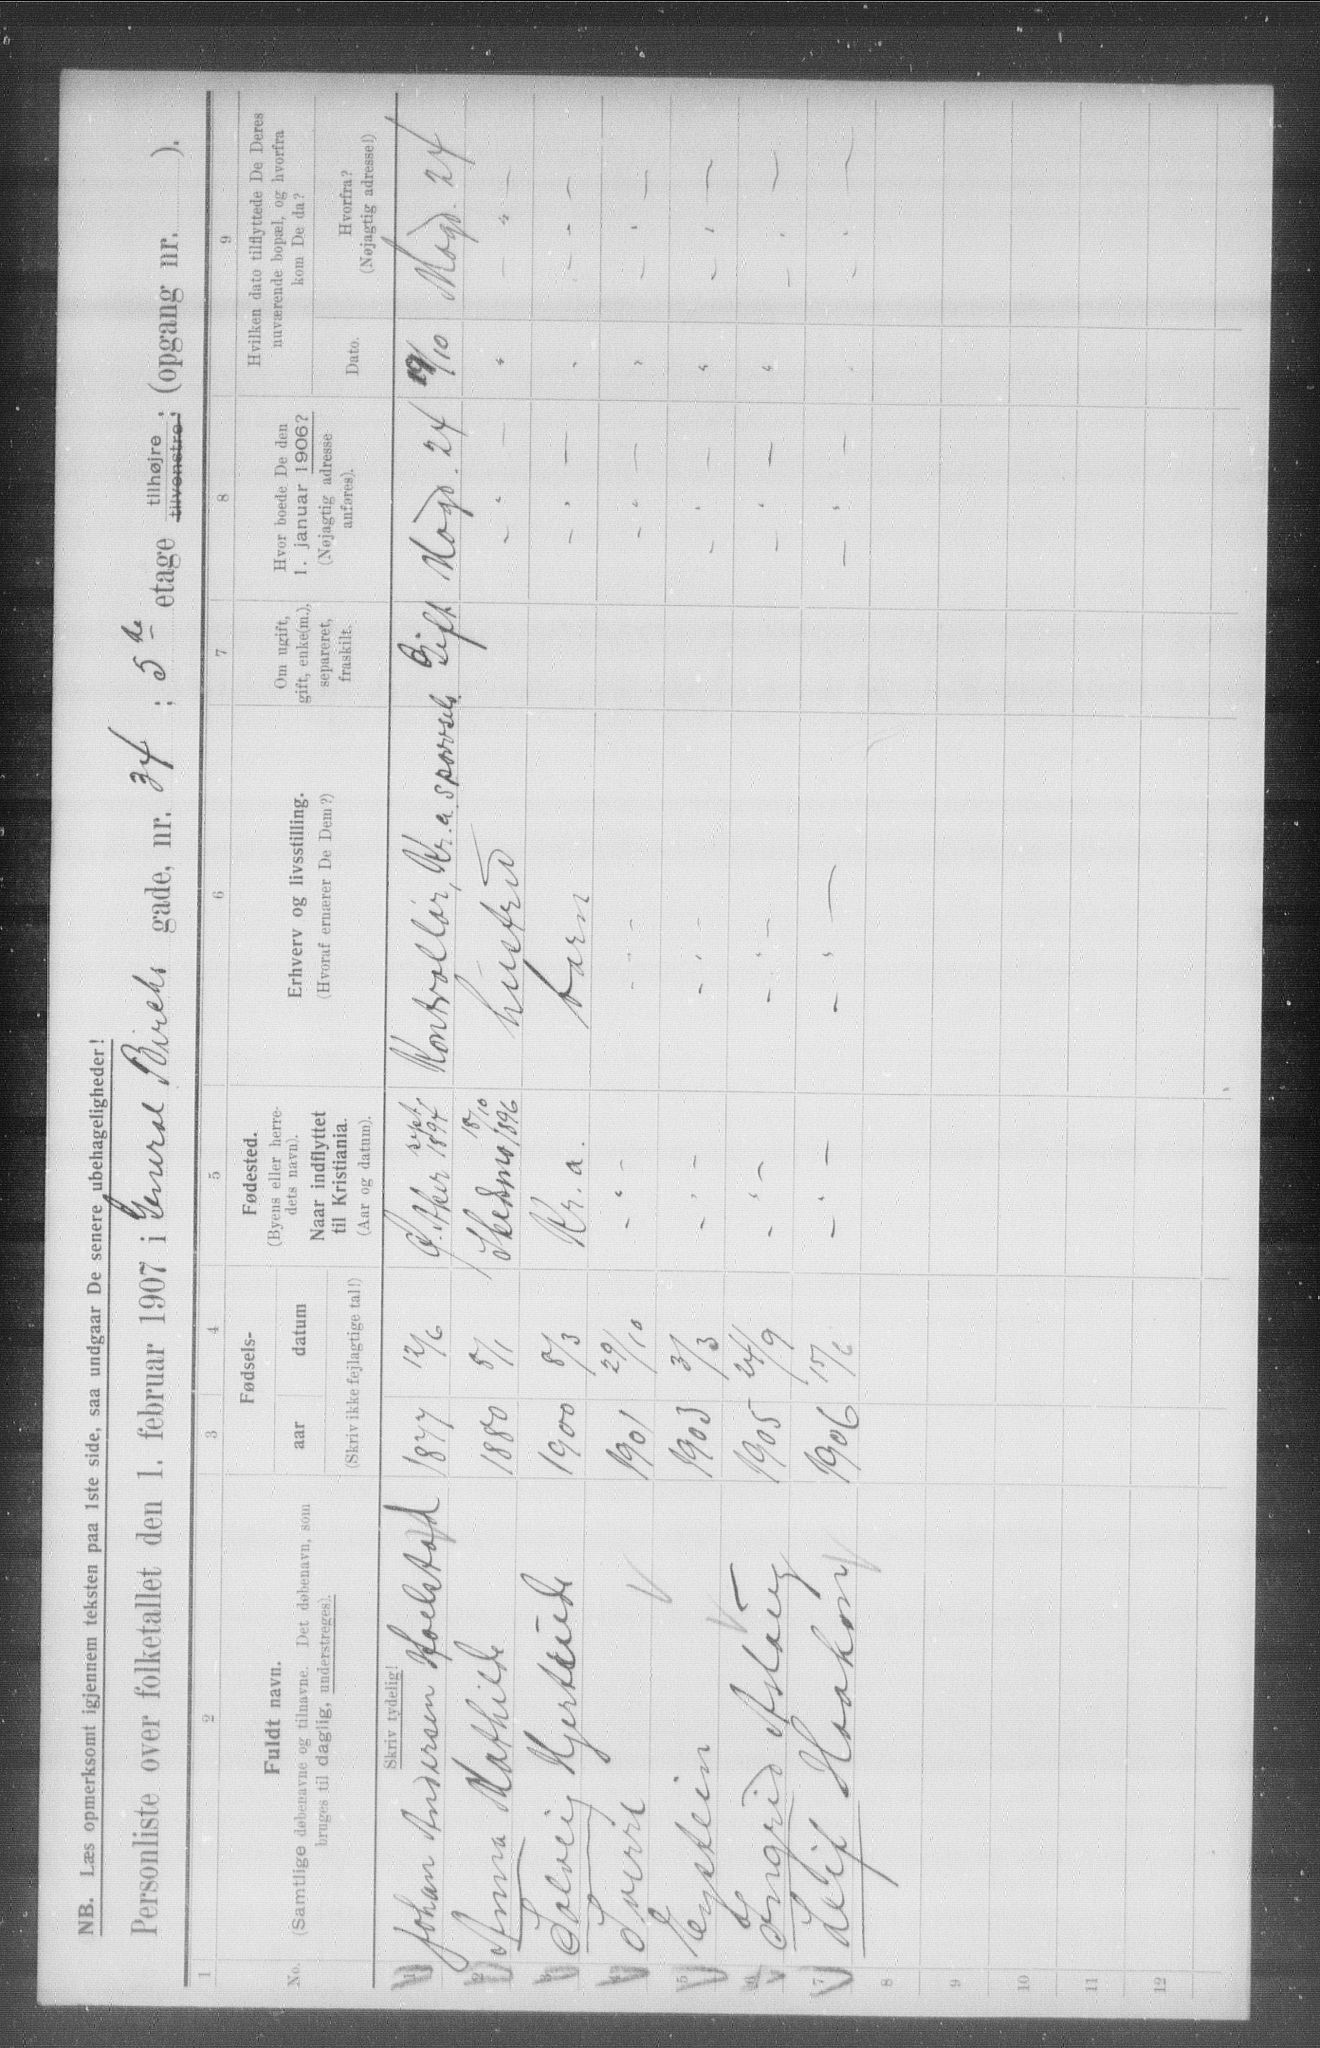 NB. Læs opmerksomt igjennem teksten paa 1ste side, saa undgaar De senere ubehageligheder!
Personliste over folketallet den 1. februar 1907 i General Birchs gade, nr. 34; 5 te etage tilhøjre tilvenstre; (opgang nr. ).
1 2 3 4 5 6 7 8 9
No.
Fuldt navn.
(Samtlige døbenavne og tilnavne. Det døbenavn, som
bruges til daglig, understreges).
Fødsels-
aar datum
(Skriv ikke fejlagtige tal!)
Fødested.
(Byens eller herre-
dets navn).
Naar indflyttet
til Kristiania.
(Aar og datum).
Erhverv og livsstilling.
(Hvoraf ernærer De Dem?)
Om ugift,
gift, enke(m.),
separeret,
fraskilt.
Hvor boede De den
1. januar 1906?
(Nøjagtig adresse
anføres).
Hvilken dato tilflyttede De Deres
nuværende bopæl, og hvorfra
kom De da?
Dato.
Hvorfra?
(Nøjagtig adresse!)
Skriv tydelig!
1 Johan Andersen 1877 12/6 Ø. Aker sept. 1894 Kontrollør, Kr.a. sporvsels. Gift Mogs. 24 19/10 Mogs. 24
2 Anna Mathilde 1880 5/1 Skedsmo 18/10 1896 hustru — " — " — " —
3 Solveig Gjertrude 1900 8/3 Kr.a. barn — " — " — " —
4 Sverre 1901 29/10 — " — — " — — " — " — " —
5 Eystein 1903 3/3 — " — — " — — " — " — " —
6 Ingrid Aslaug 1905 24/9 — " — — " — — " — " — " —
7 Leif Haakon 1906 15/6 — " — — " — — " — — " —
8
9
10
11
12